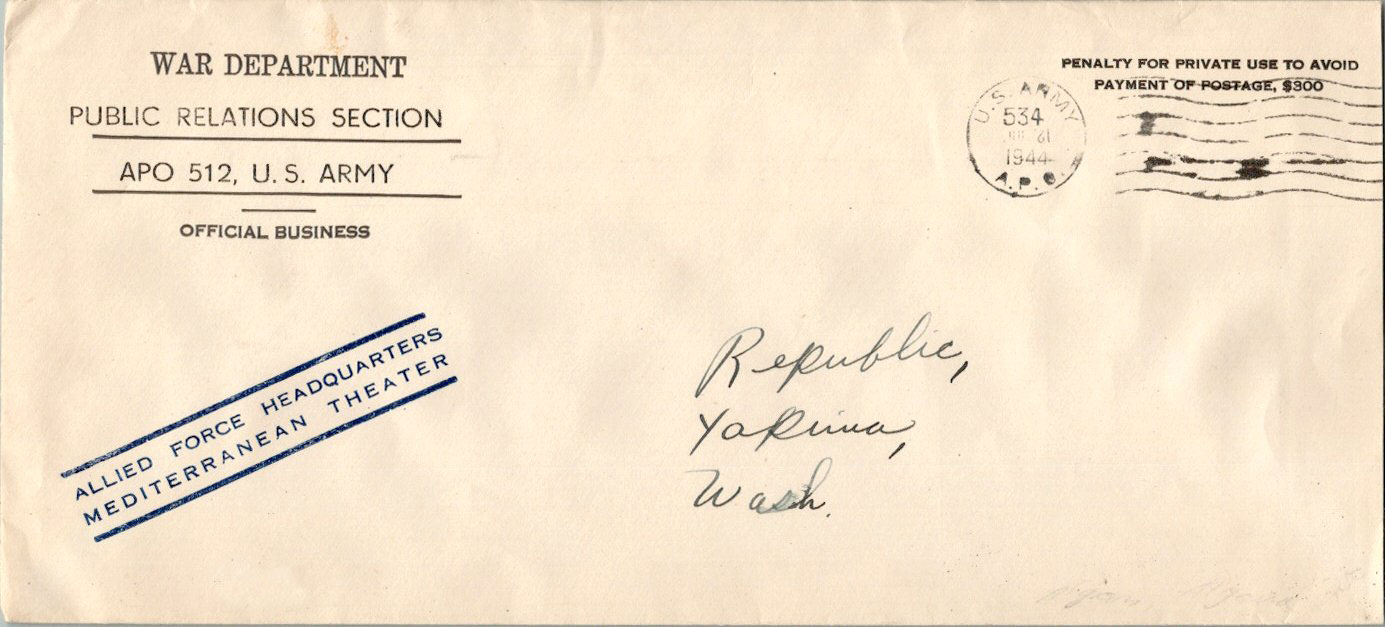 WAR DEPARTMENT
PUBLIC RELATIONS SECTION
APO 512, U. S. ARMY
OFFICIAL BUSINESS
PENALTY FOR PRIVATE USE TO AVOID
PAYMENT OF POSTAGE, $300
U.S. ARMY
534
1944
A.P.O.
ALLIED FORCE HEADQUARTERS
MEDITERRANEAN THEATER
Republic,
Yakima,
Wash.